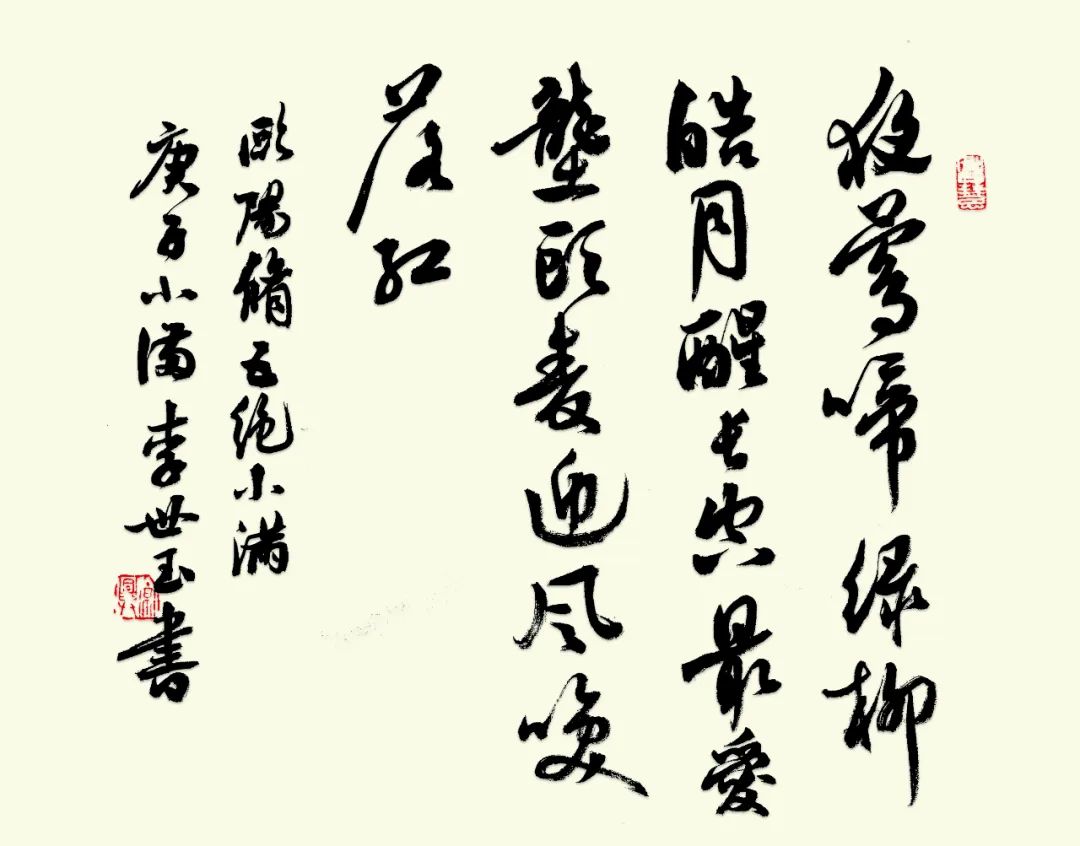 夜莺啼绿柳
皓月醒长空最愛
壟頭麦迎风咲
落红
欧陽脩五绝小满
庚子小满李世玉書